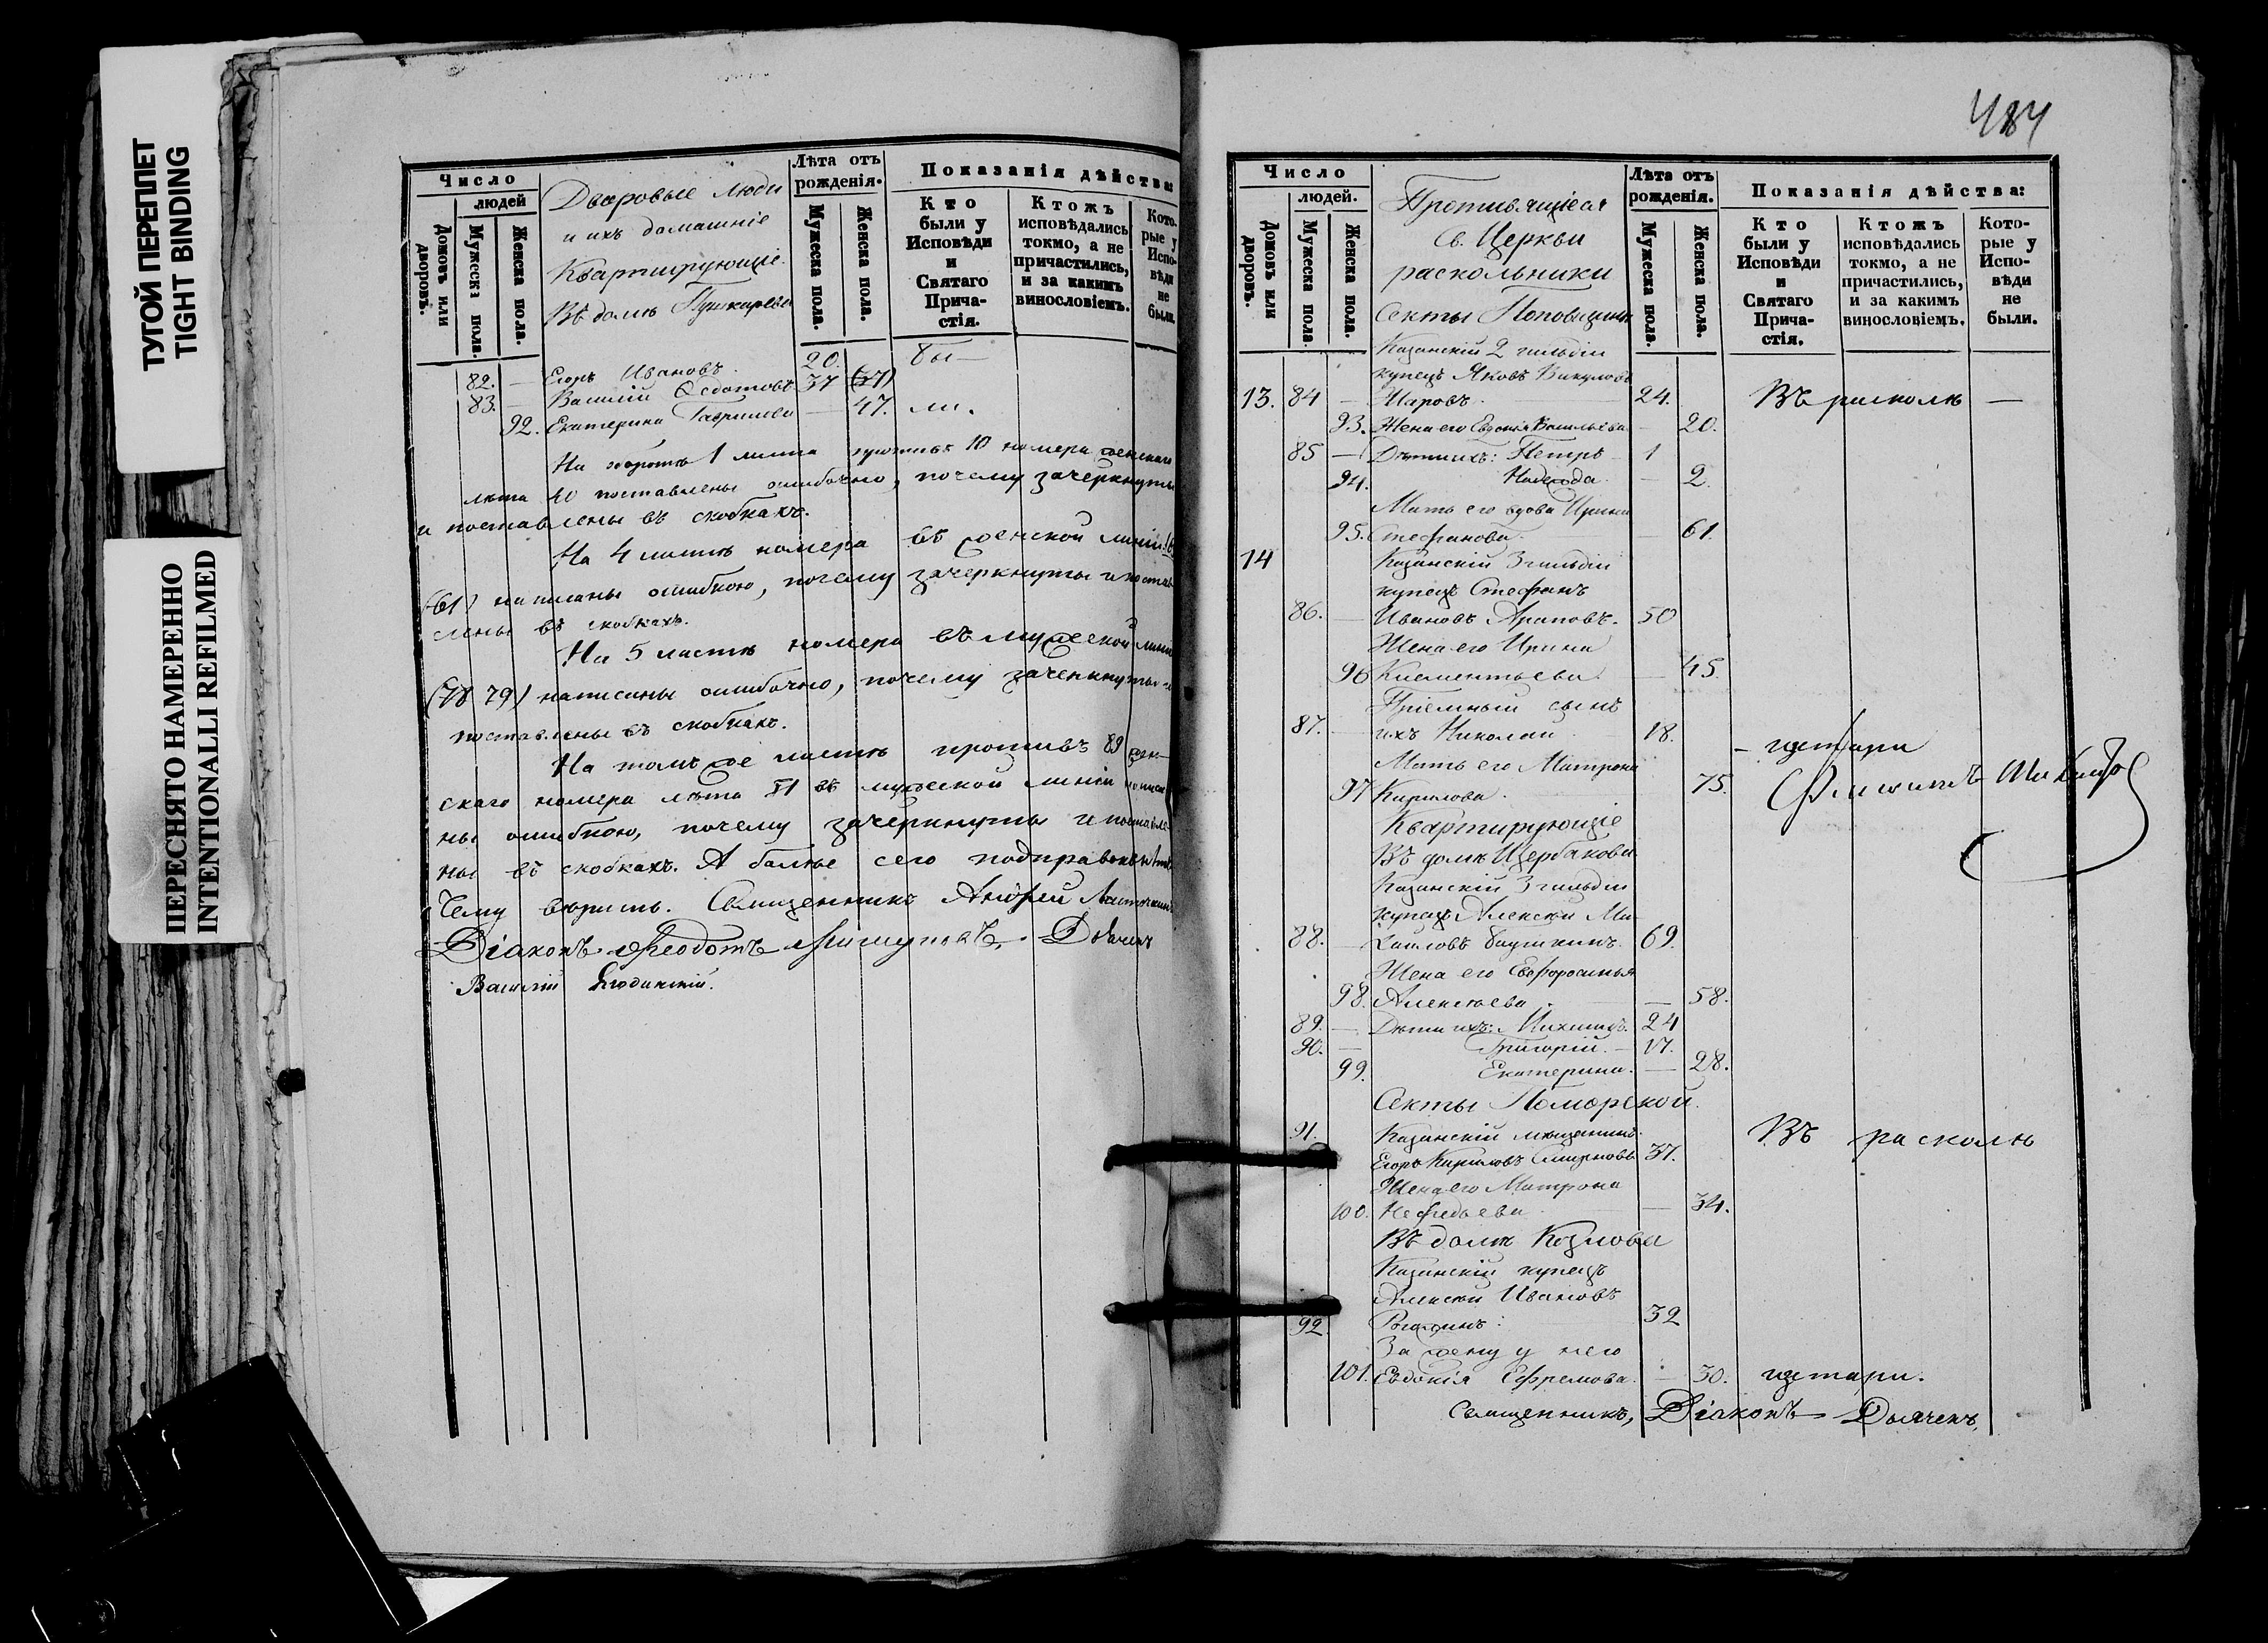 ТУГОЙ ПЕРЕПЛЕТ
TIGHT BINDING
ПЕРЕСНЯТО НАМЕРЕННО
INTENTIONALLI REFILMED
Число
людей
Домовъ или дворовъ.
Мужеска пола.
Женска пола.
Дворовые люди
и ихъ домашніе
Квартирующіе
Въ домѣ Пушкарева
Лѣта отъ рожденія.
Мужеска пола.
Женска пола.
Показанія дѣйства:
Кто были у Исповѣди и Святаго Прича-стія.
Ктожъ исповѣдались токмо, а не причастились, и за какимъ винословіемъ.
Кото-рые у Испо-вѣди не были.
82. — Егоръ Ивановъ 20. бы—
83. — Василій Ѳедотовъ 37 (37)
92. Екатерина Гаврилова — 47. ли.
На оборотѣ 1 листа противъ 10 номера женскаго
лѣта 40 поставлены ошибочно, почему зачеркнуты
и поставлены въ скобкахъ.
На 4 листѣ номера въ женской линіи
(61) написаны ошибкою, почему зачеркнуты и постав
лены въ скобкахъ.
На 5 листѣ номера въ мужеской линіи
(78 79) написаны ошибочно, почему зачеркнуты и
поставлены въ скобкахъ.
На томъ же листѣ противъ 89 жен-
скаго номера лѣта въ мужеской линіи написа
ны ошибкою, почему зачеркнуты и поставле-
ны въ скобкахъ. А болѣе сего подправокъ нѣтъ
Чему вѣрить. Священникъ Андрей
Діаконъ Ѳеодотъ Дьячекъ
Василій
484
Число
людей.
Домовъ или дворовъ.
Мужеска пола.
Женска пола.
Противящіеся
Св. Церкви
раскольники
Секты Поповщинск
Лѣта отъ рожденія.
Мужеска пола.
Женска пола.
Показанія дѣйства:
Кто были у Исповѣди и Святаго Прича-стія.
Ктожъ исповѣдались токмо, а не причастились, и за какимъ винословіемъ.
Кото-рые у Испо-вѣди не были.
Казанскій 2 гильдіи
купецъ Яковъ Викуловъ
13. 84 — Шаровъ. 24. Въ расколѣ —
93. Жена его Евдокія Васильева — 20.
85 — Дѣти ихъ: Петръ — 1
94. Надежда. — 2.
Мать его вдова Ирина
95. Стефанова. — 61.
14 Казанскій 3 гильдіи
купецъ Стефанъ
86. — Ивановъ Араповъ. 50
Жена его Ирина
96 Клементьева. — 45.
Пріемный сынъ
87. — ихъ Николай 18.
Мать его Матрона
97 Кирилова. 75.
— щетари
Квартирующіе
Въ домѣ Щербакова
Казанскій 3 гильдіи
купецъ Алексѣй Ми-
88. — хайловъ Баушкинъ. 69.
Жена его Евфросинья
98. Алексѣева. — 58.
89. — Дѣти ихъ: Михаилъ. 24
90. — Григорій. — 17.
99. Екатерина. — 28.
Секты Поморской.
91. Казанскій мѣщанинъ Въ расколѣ
Егоръ Кириловъ Смирновъ 37.
Жена его Матрона
100. Нефедьева — 34.
Въ домѣ Козлова
Казанскій купецъ
Алексѣй Ивановъ
92. Рогожинъ: 32
За жену у него
101. Евдокія Ефремова. — 30. щетари.
Священникъ, Діаконъ Дьячекъ,